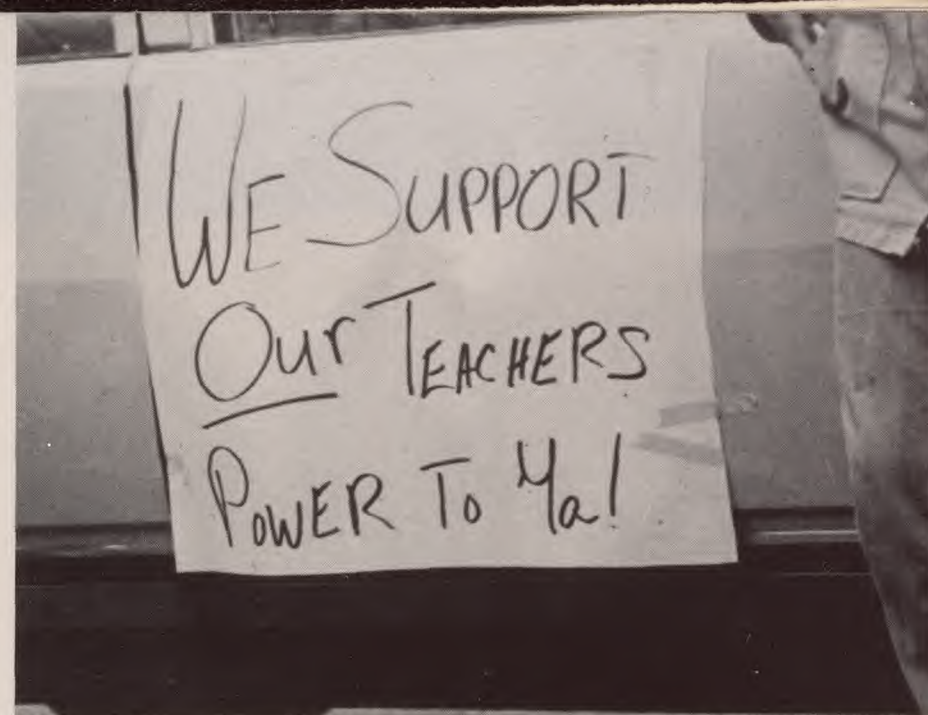 WE SUPPORT
Our TEACHERS
POWER To Ya!